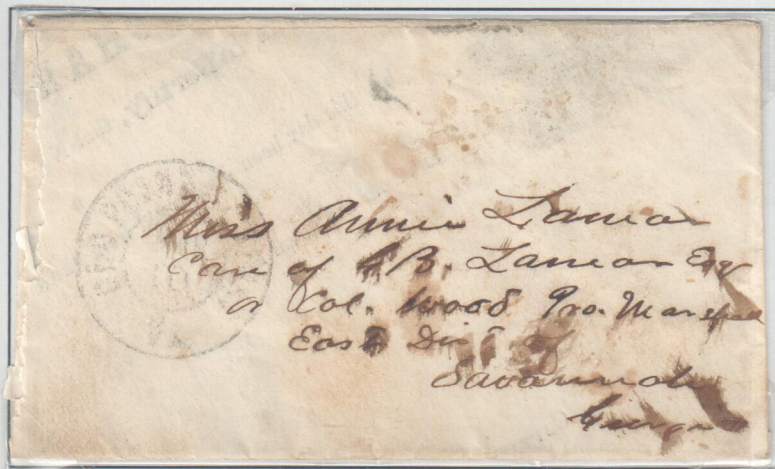 Miss Annie Lamar
Care of G B. Lamar Esq
or Col. Wood Pro. Marshal
East Dist of
Savannah
Georgia